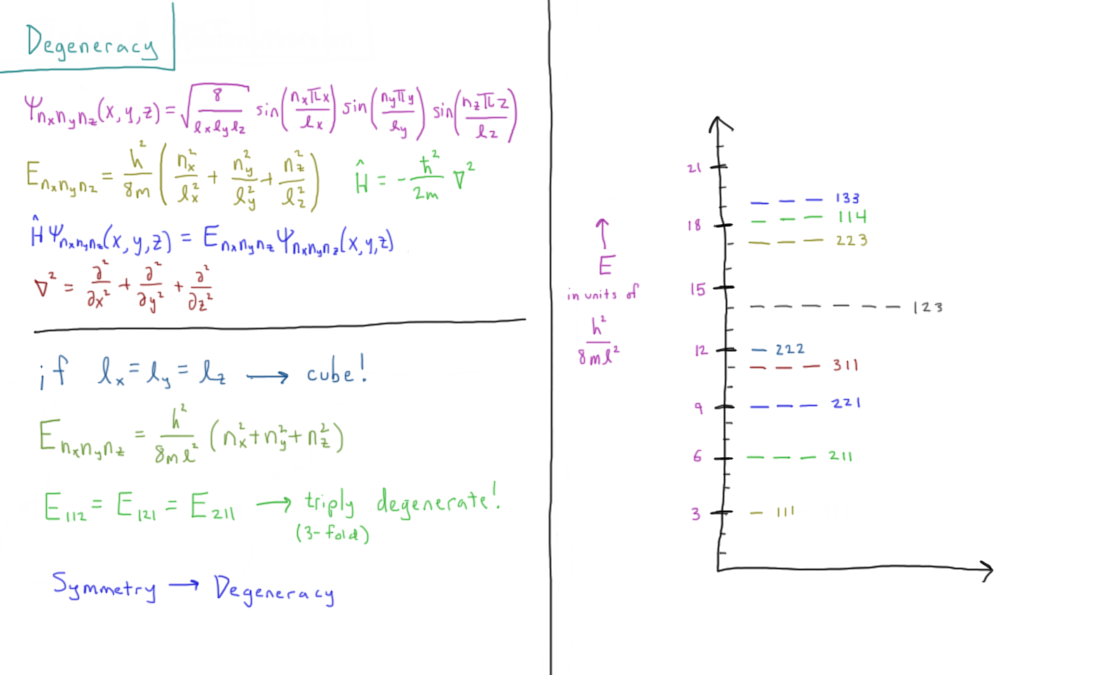 Degeneracy
Ψₙₓₙᵧₙz(x,y,z) = √(8/(lₓ lᵧ l_z)) sin(nₓπx/lₓ) sin(nᵧπy/lᵧ) sin(n_zπz/l_z)
E_nₓnᵧn_z = h²/8m (nₓ²/lₓ² + nᵧ²/lᵧ² + n_z²/l_z²)    Ĥ = -ħ²/2m ∇²
ĤΨ_nₓnᵧn_z(x,y,z) = E_nₓnᵧn_z Ψ_nₓnᵧn_z(x,y,z)
∇² = ∂²/∂x² + ∂²/∂y² + ∂²/∂z²
if lₓ = lᵧ = l_z → cube!
E_nₓnᵧn_z = h²/8ml² (nₓ²+nᵧ²+n_z²)
E₁₁₂ = E₁₂₁ = E₂₁₁ → triply degenerate!
(3-fold)
Symmetry → Degeneracy
↑
E
in units of
h²/8ml²
21
133
114
18
223
15
123
12 222
311
9 221
6 211
3 111